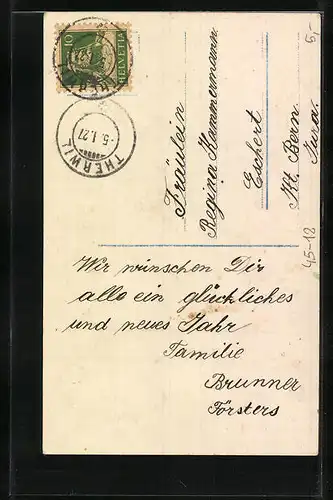 10
HELVETIA
THERWIL
-5.I.27
Fräulein
Regina Kammermann
Eschert
Kt. Bern
Jura.
5,-
45-12
Wir wünschen Dir
allo ein glückliches
und neues Jahr
Familie
Brunner
Försters